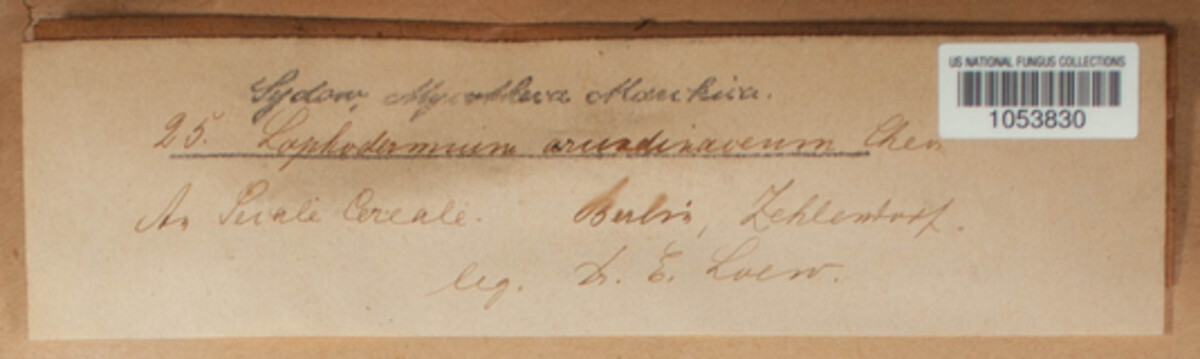 Sydow, Mycotheca Marchica.
US NATIONAL FUNGUS COLLECTIONS
1053830
25. Lophodermium arundinaceum Chev
An Secale Cereale. Berlin, Zehlendorf.
leg. Dr. E. Loew.